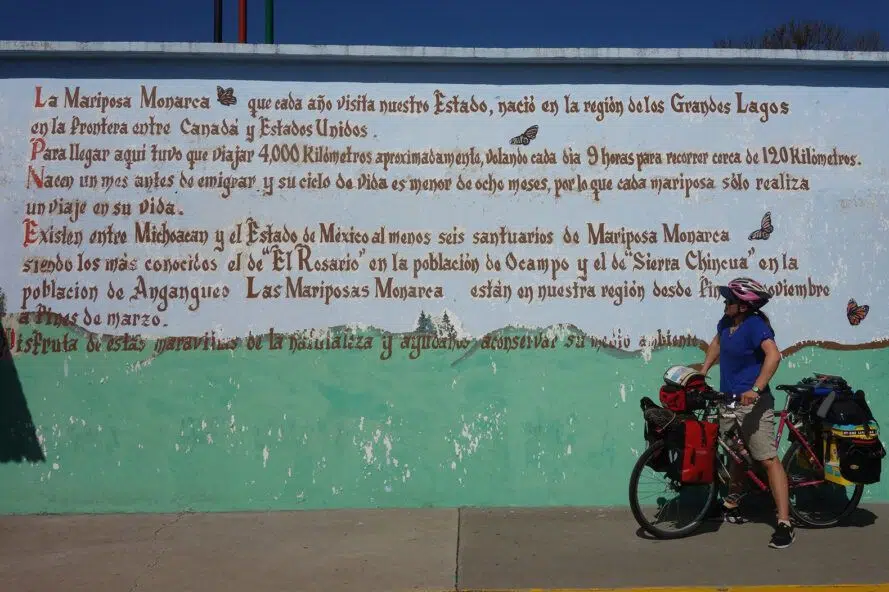 La Mariposa Monarca que cada año visita nuestro Estado, nació en la región de los Grandes Lagos
en la frontera entre Canadá y Estados Unidos.
Para llegar aquí tuvo que viajar 4,000 Kilómetros aproximadamente, volando cada dia 9 horas para recorrer cerca de 120 Kilómetros.
Nacen un mes antes de emigrar y su ciclo de vida es menor de ocho meses, por lo que cada mariposa sólo realiza
un viaje en su vida.
Existen entre Michoacan y el Estado de México al menos seis santuarios de Mariposa Monarca
siendo los más conocidos el de "El Rosario" en la población de Ocampo y el de "Sierra Chincua" en la
poblacion de Angangueo Las Mariposas Monarca están en nuestra región desde fines de noviembre
a fines de marzo.
Disfruta de estas maravillas de la naturaleza y ayudanos aconservar su medio ambiente